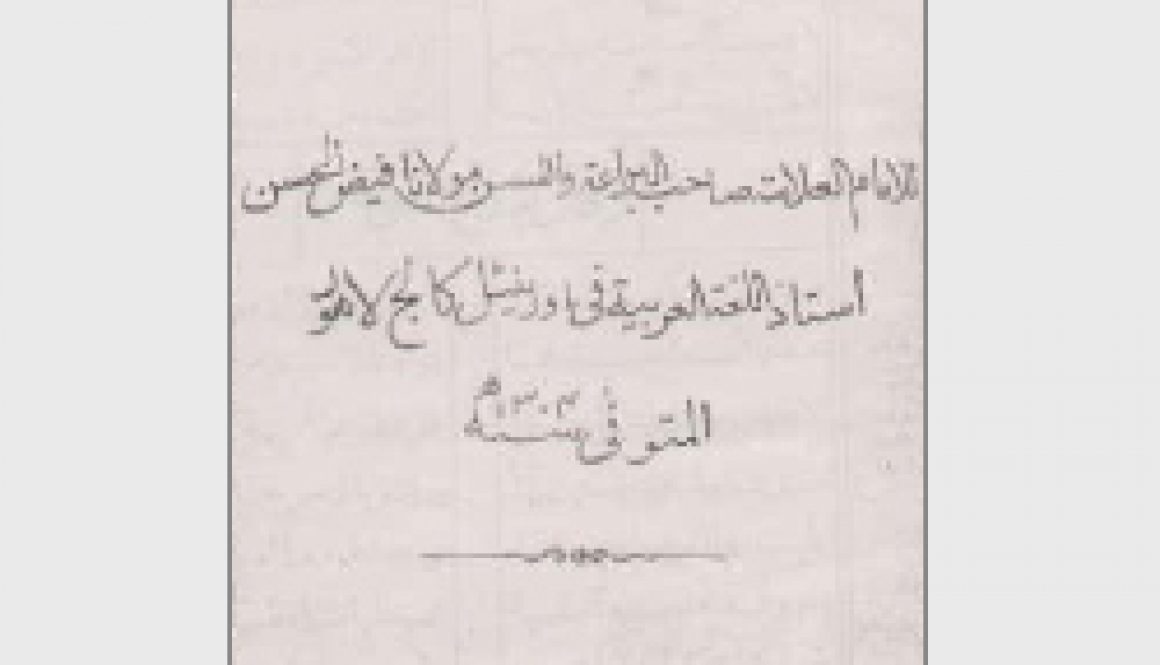 للامام العلامة صاحب البراعة واللسن مولانا فيض الحسن
استاذ اللغة العربية فى اورينٹل كالج لاهور
المتوفى سنة ١٣٠٤ھ